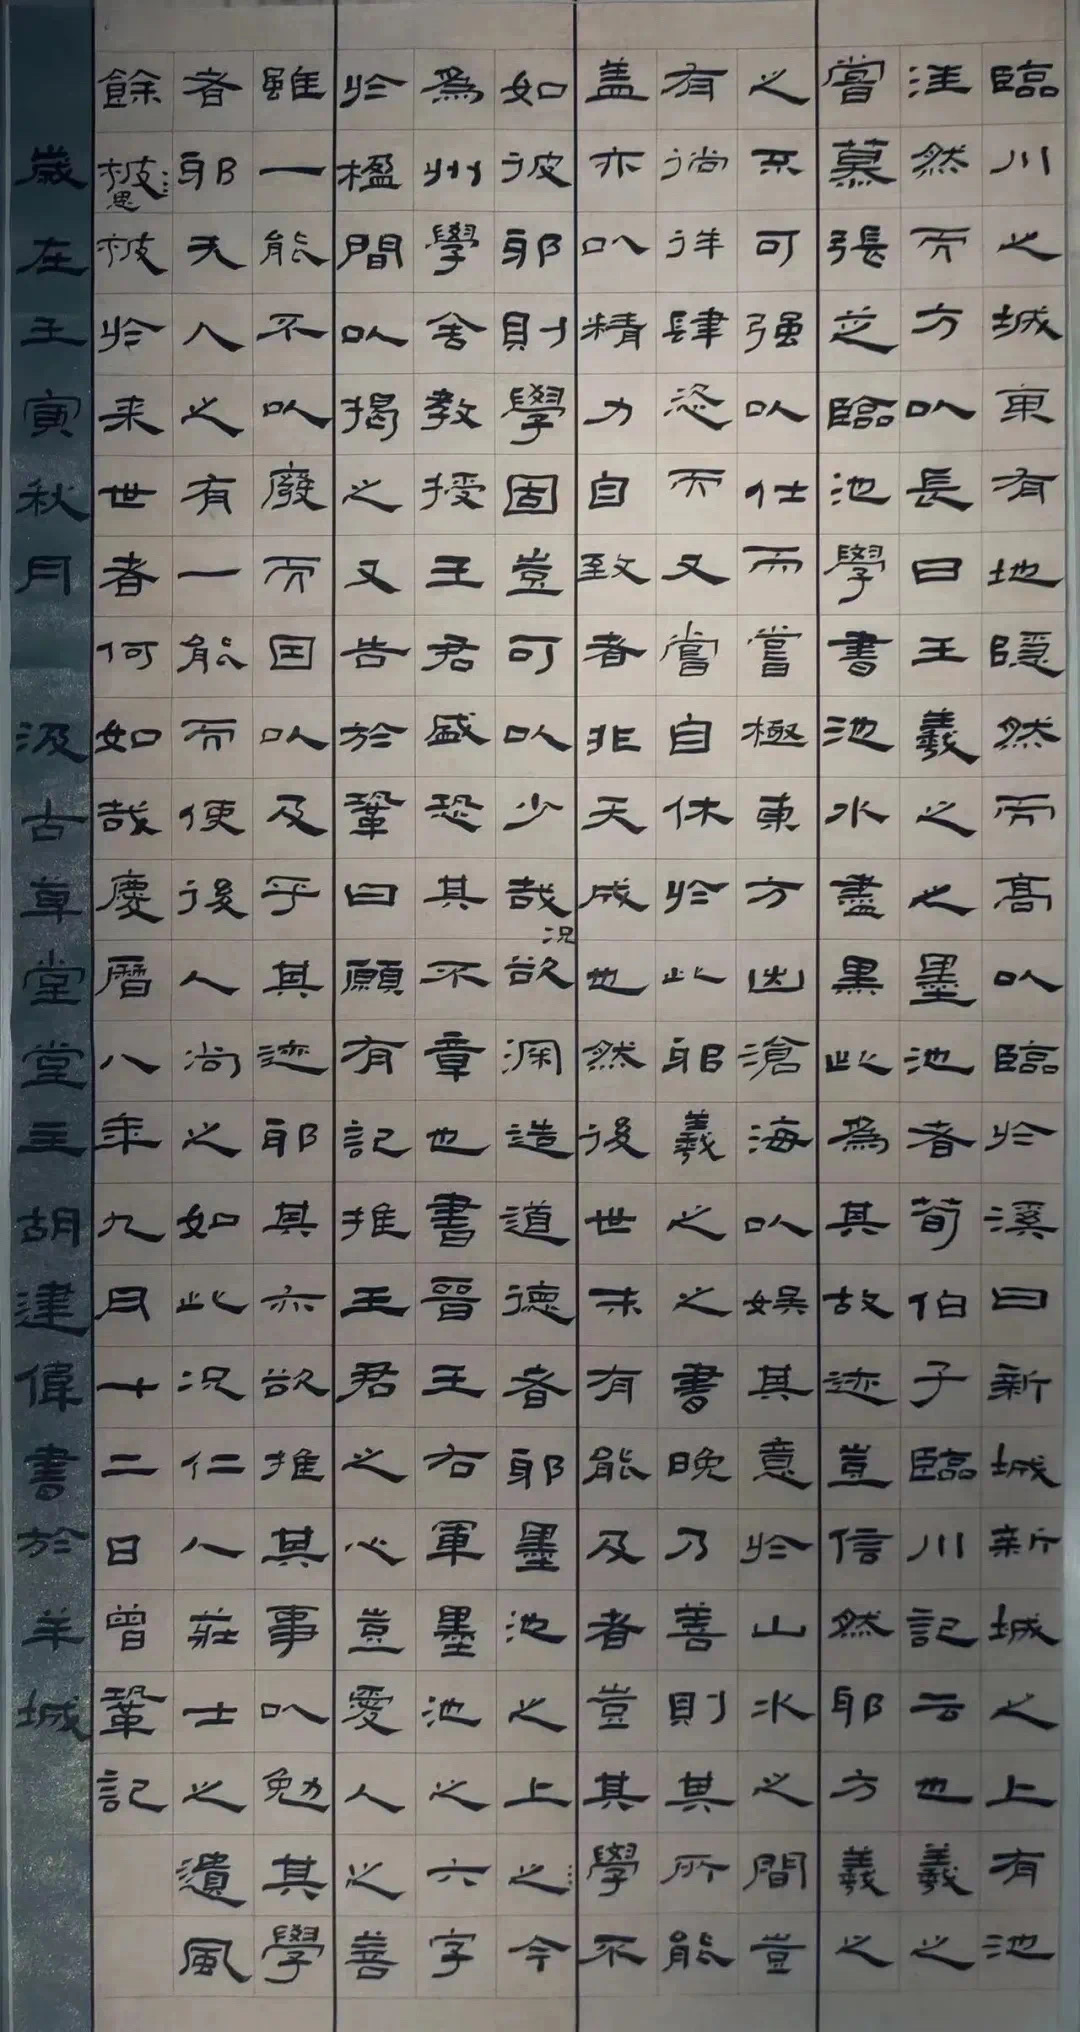 臨川之城東有地隱然而高以臨於溪曰新城新城之上有池
洼然而方以長曰王羲之之墨池者荀伯子臨川記云也羲之
嘗慕張芝臨池學書池水盡黑此為其故迹豈信然耶方羲之
之不可强以仕而嘗極東方出滄海以娛其意於山水之間豈
有徜徉肆恣而又嘗自休於此邪羲之之書晚乃善則其所能
盖亦以精力自致者非天成也然後世未有能及者豈其學不
如彼邪則學固豈可以少哉况欲深造道德者邪墨池之上之今
為州學舍教授王君盛恐其不章也書晉王右軍墨池之六字
於楹間以揭之又告於鞏曰願有記推王君之心豈愛人之善
雖一能不以廢而因以及乎其迹耶其亦欲推其事以勉其學
者邪夫人之有一能而使後人尚之如此况仁人莊士之遺風
餘被思被於来世者何如哉慶曆八年九月十二日曾鞏記
歲在壬寅秋月 汲古草堂堂主胡建偉書於羊城